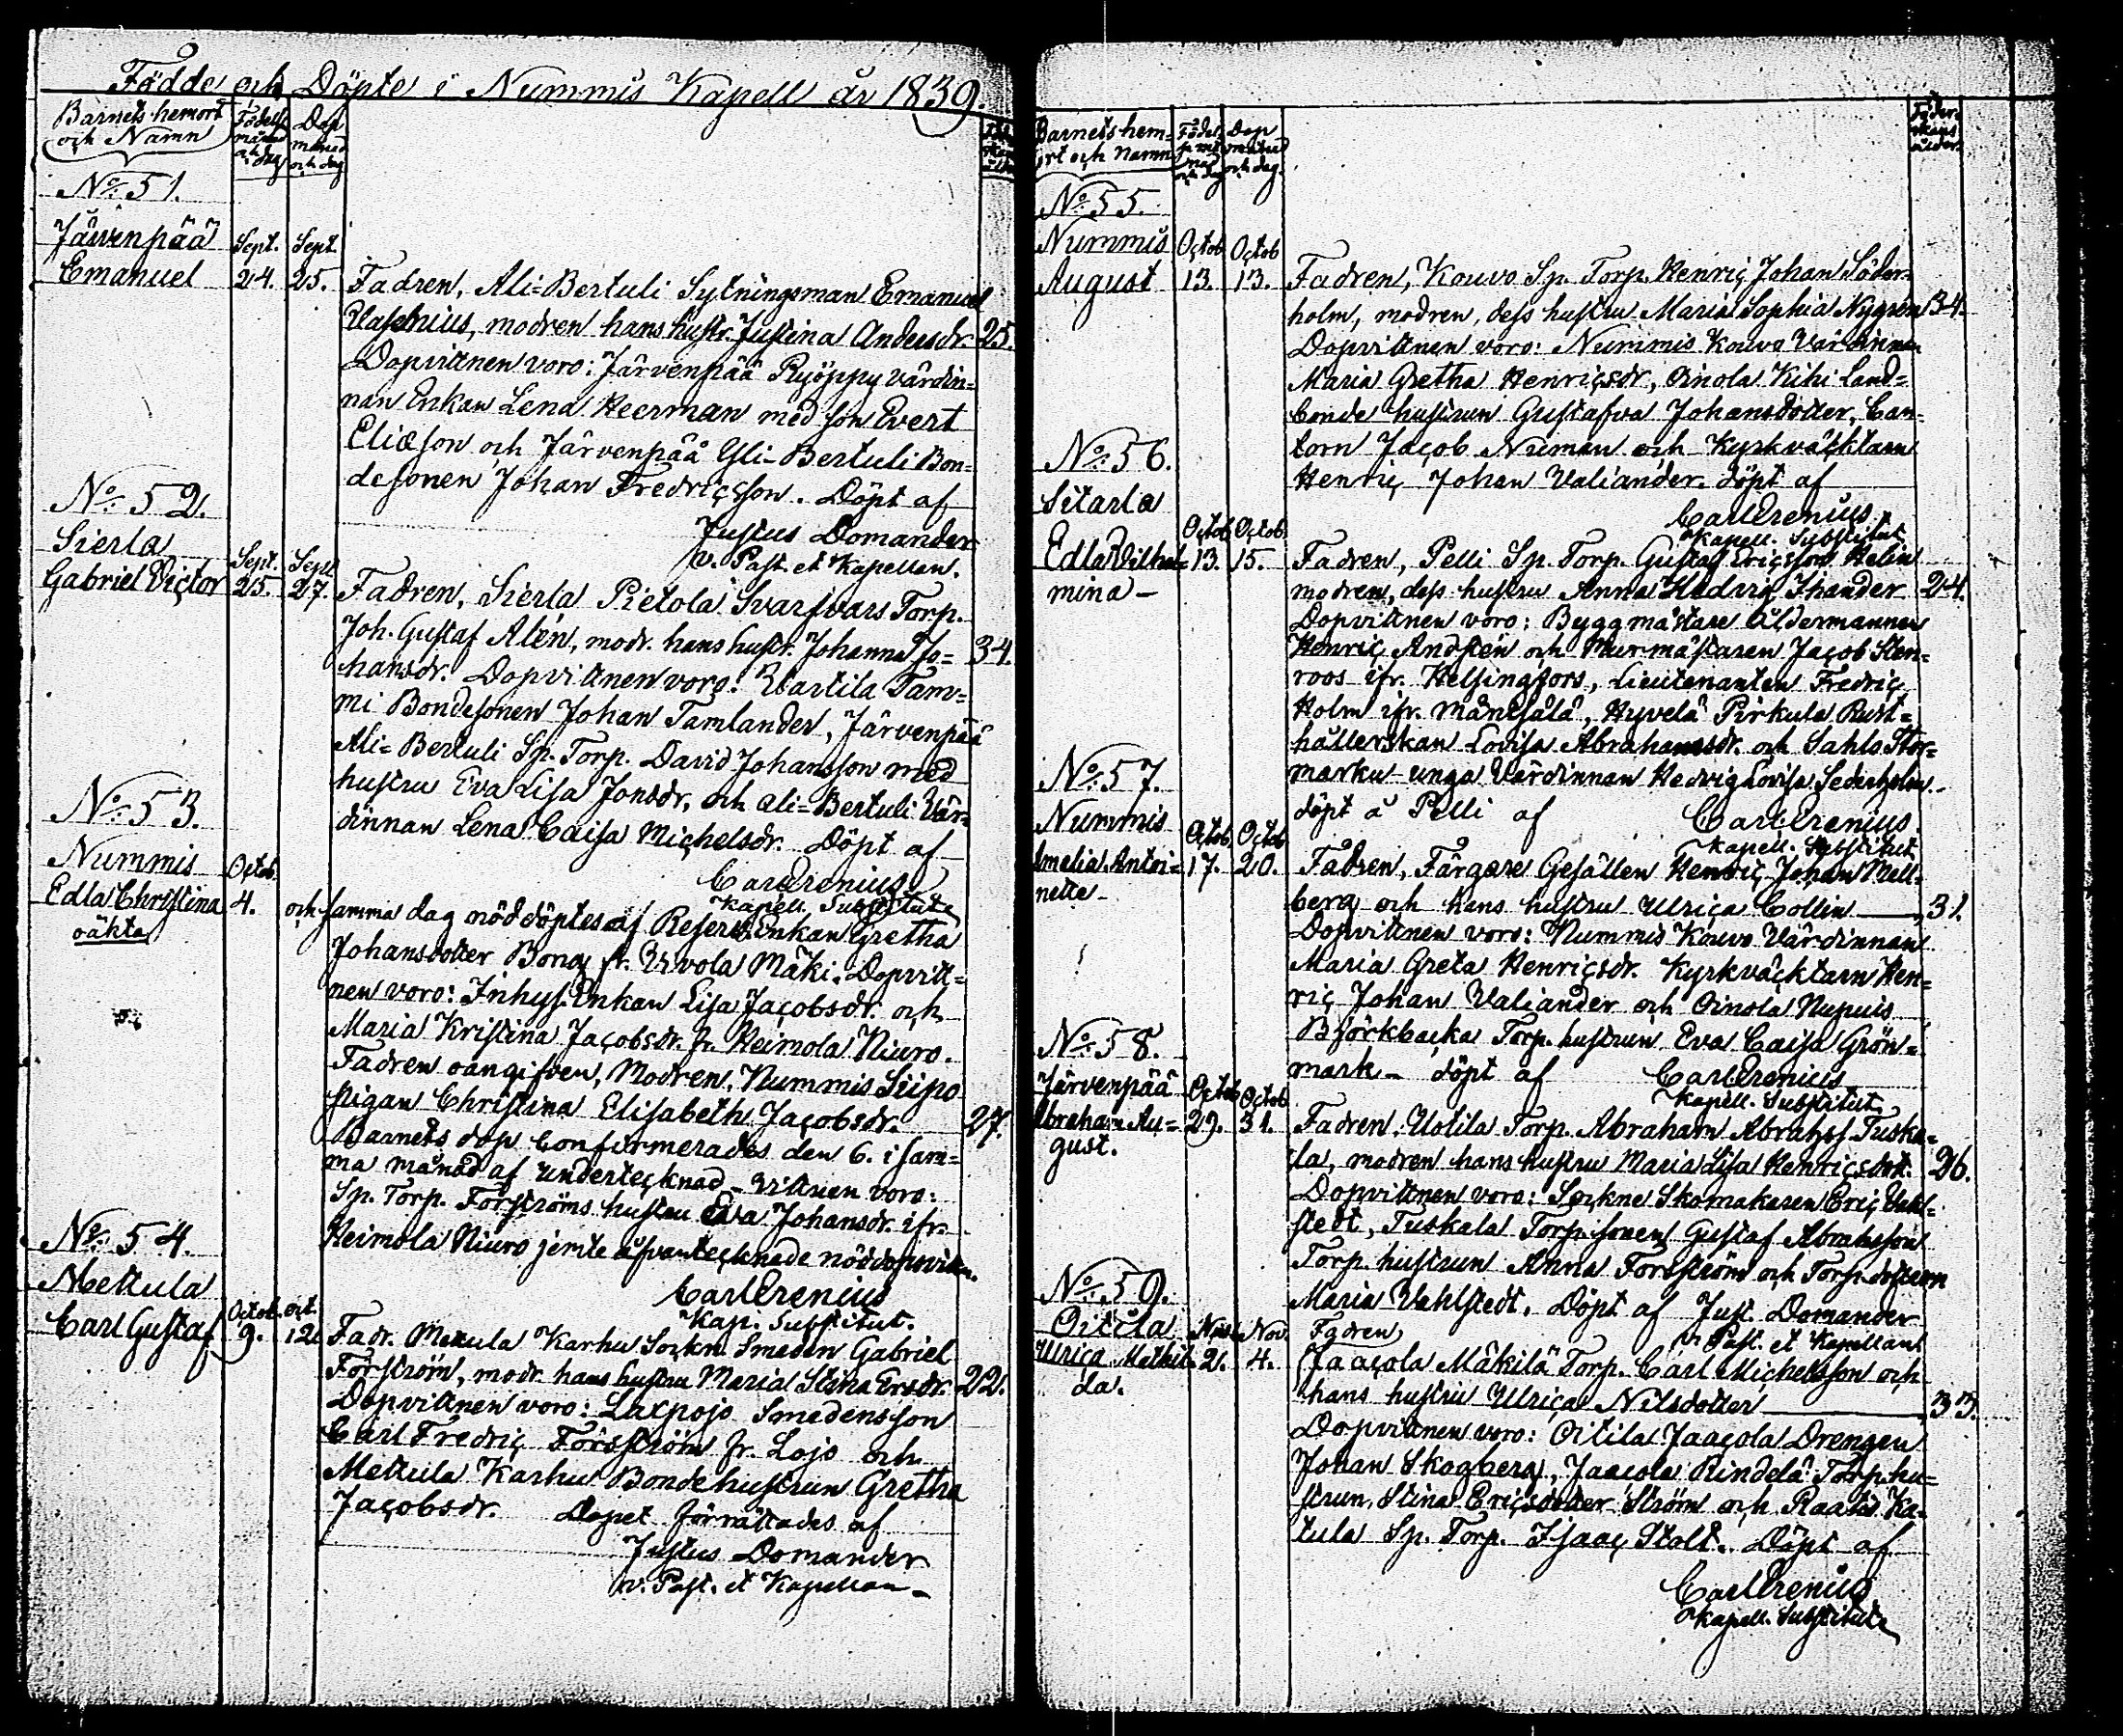 Födde och Döpte i Nummis Kapell år 1839.
Barnets hemort
och Namn
Födelse
månad
och dag
Dop
månad
och dag
No. 51.
Järvenpää
Emanuel
Sept.
24.
Sept.
25.
Fadren, Ali-Bertuli Sytningsman Emanuel
modren hans hustr. Justina Andersdr. 25.
Dopvittnen voro: Järvenpää Ryöppy värdin-
nan Enkan Lena Heerman med son Evert
Eliæson och Järvenpää Yli-Bertuli Bon-
desonen Johan Fredricsson. Döpt af
Justus Domander
v. Past. et Kapellan.
No. 52.
Sierla
Gabriel Victor
Sept.
25.
Sept
27.
Fadren, Sierla Pietola Svarfvars Torp.
Joh. Gustaf Alén, modr. hans hustr. Johanna Jo- 34.
hansdr. Dopvittnen voro: Vartila Tam-
mi Bondesonen Johan Tamlander, Järvenpää
Ali-Bertuli Sp. Torp. David Johansson med
hustru Eva Lisa Jonsdr. och Ali-Bertuli Vär-
dinnan Lena Caisa Michelsdr. Döpt af
Carl Crenius
Kapell. Substitut
No. 53.
Nummis
Edla Christina
oäkta
Octob.
4.
och samma dag nöddöptes af Reserv. Enkan Gretha
Johansdotter Bong fr. Mäki. Dopvitt-
nen voro: Inhys. Enkan Lisa Jacobsdr. och
Maria Kristina Jacobsdr. fr. Heimola Niuro.
Fadren oangifven, Modren, Nummis Siipo
pigan Christina Elisabeth Jacobsdr. 27.
Barnets dop confirmerades den 6. i sam-
ma månad af undertecknad - Vittnen voro:
Sp. Torp. Forströms hustru Eva Johansdr. ifr.
Heimola Niuro jemte ofvantecknade nöddopsvittn.
Carl Crenius
Kap. Substitut.
No. 54.
Mettula
Carl Gustaf
Octob.
9.
oct.
12.
Fadr. Mettula Karhu Sockn. Smeden Gabriel
Forström, modr. hans hustru Maria Stina Ersdr. 22.
Dopvittnen voro: Laxpojo Smedensson
Carl Fredric Forsström fr. Lojo och
Mettula Karhu Bondehustrun Gretha
Jacobsdr. Dopet förrättades af
Justus Domander
v. Past. et Kapellan
Barnets hem-
ort och Namn
Födel-
se må-
nad
och dag
Dop
månad
och dag.
Föder-
skans
ålder.
No. 55.
Nummis
August
Octob
13.
Octob
13.
Fadren, Kouvo Sp. Torp. Henric Johan Söder-
holm, modren, dess hustru Maria Sophia Nygren 34.
Dopvittnen voro: Nummis Kouvo Värdinnan
Maria Gretha Henricsdr, Oinola Kihi Land-
bonde hustrun Gustafva Johansdotter, Can-
torn Jacob Numan och Kyrkväcktarn
Henric Johan Valiander. döpt af
Carl Crenius
Kapell. Substitut
No. 56.
Sitarla
Edla Vilhel-
mina -
Octob
13.
Octob.
15.
Fadren, Pelli Sp. Torp. Gustaf Ericsson Helin
modren, dess hustru Anna Hedvig Thander 24.
Dopvittnen voro: Byggmästare Åldermannen
Henric Andsten och Murmästaren Jacob Sten-
roos ifr. Helsingfors, Lieutenanten Fredric
Holm ifr. Mäntsälä, Hyvelä Pirkula Rust-
hållerskan Lovisa Abrahamsdr. och Sahlo Stor-
marku unga Värdinnan Hedvig Lovisa Sederholm.
döpt å Pelli af Carl Crenius
Kapell. Substitut
No. 57.
Nummis
Amelia Antoi-
nette -
Octob
17.
Octob
20.
Fadren, Färgare Gesällen Henric Johan Mell-
berg och hans hustru Ulrica Collin 31.
Dopvittnen voro: Nummis Kouvo Värdinnan
Maria Greta Henricsdr. Kyrkväcktarn Hen-
ric Johan Valiander och Oinola Nupuis
Björkbacka Torp. hustrun Eva Caisa Grön-
mark - döpt af Carl Crenius
Kapell. Substitut
No. 58.
Järvenpää
Abraham Au-
gust.
Octob
29.
Octob
31.
Fadren, Uotila Torp. Abraham Abrahss. Tuska-
la, modren hans hustru Maria Lisa Henricsdott. 26.
Dopvittnen voro: Sockne Skomakaren Eric Vahl-
stedt, Tuskala Torp. sonen Gustaf Abrahsson
Torp. hustrun Anna Forsström och Torp. dottren
Maria Vahlstedt. Döpt af Just. Domander
v. Past. et Kapellan
No. 59.
Oitila
Ulrica Mathil-
da.
Nov.
2.
Nov.
4.
Fadren
Jaacola Mäkilä Torp. Carl Michelsson och
hans hustru Ulrica Nilsdotter 33.
Dopvittnen voro: Oitila Jaacola Drengen
Johan Skogberg, Jaacola Rindelä Torp. hu-
strun Stina Ericsdotter Ström och Raatis Ka-
tula Sp. Torp. Isaac Stolt. Döpt af
Carl Crenius
Kapell. Substitut